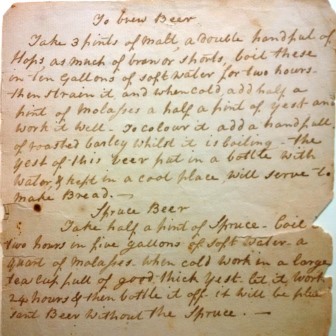 To brew Beer
Take 3 pints of malt a double handful of
Hops as much of bran or shorts, boil these
in ten gallons of soft water for two hours
then strain it and when cold add half a
pint of molasses a half a pint of yest and
work it well - To colour it add a handfull
of roasted barley whilst it is boiling - the
yest of this beer put in a bottle with
water, & kept in a cool place will serve to
make Bread. -
Spruce Beer
Take half a pint of Spruce - boil
two hours in five gallons of soft water. a
quart of molasses. when cold work in a large
tea cup full of good thick yest. let it work
24 hours & then bottle it off. it will be plea
sant Beer without the Spruce. -